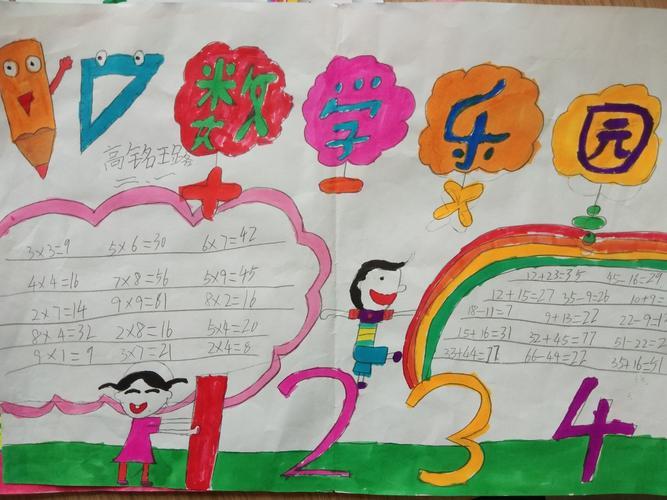 数学乐园
高铭璐
二.一
+ − × ÷
3×3=9 5×6=30 6×7=42
4×4=16 7×8=56 5×9=45
2×7=14 9×9=81 8×2=16
8×4=32 2×8=16 5×4=20
9×1=9 3×7=21 2×4=8
12+23=35 45-16=29
12+15=27 35-9=26 10+9=
18-11=7 9+13=22 22-9=1
15+16=31 32+45=77 51-22=2
33+44=77 66-49=22 35+16=51
1 2 3 4